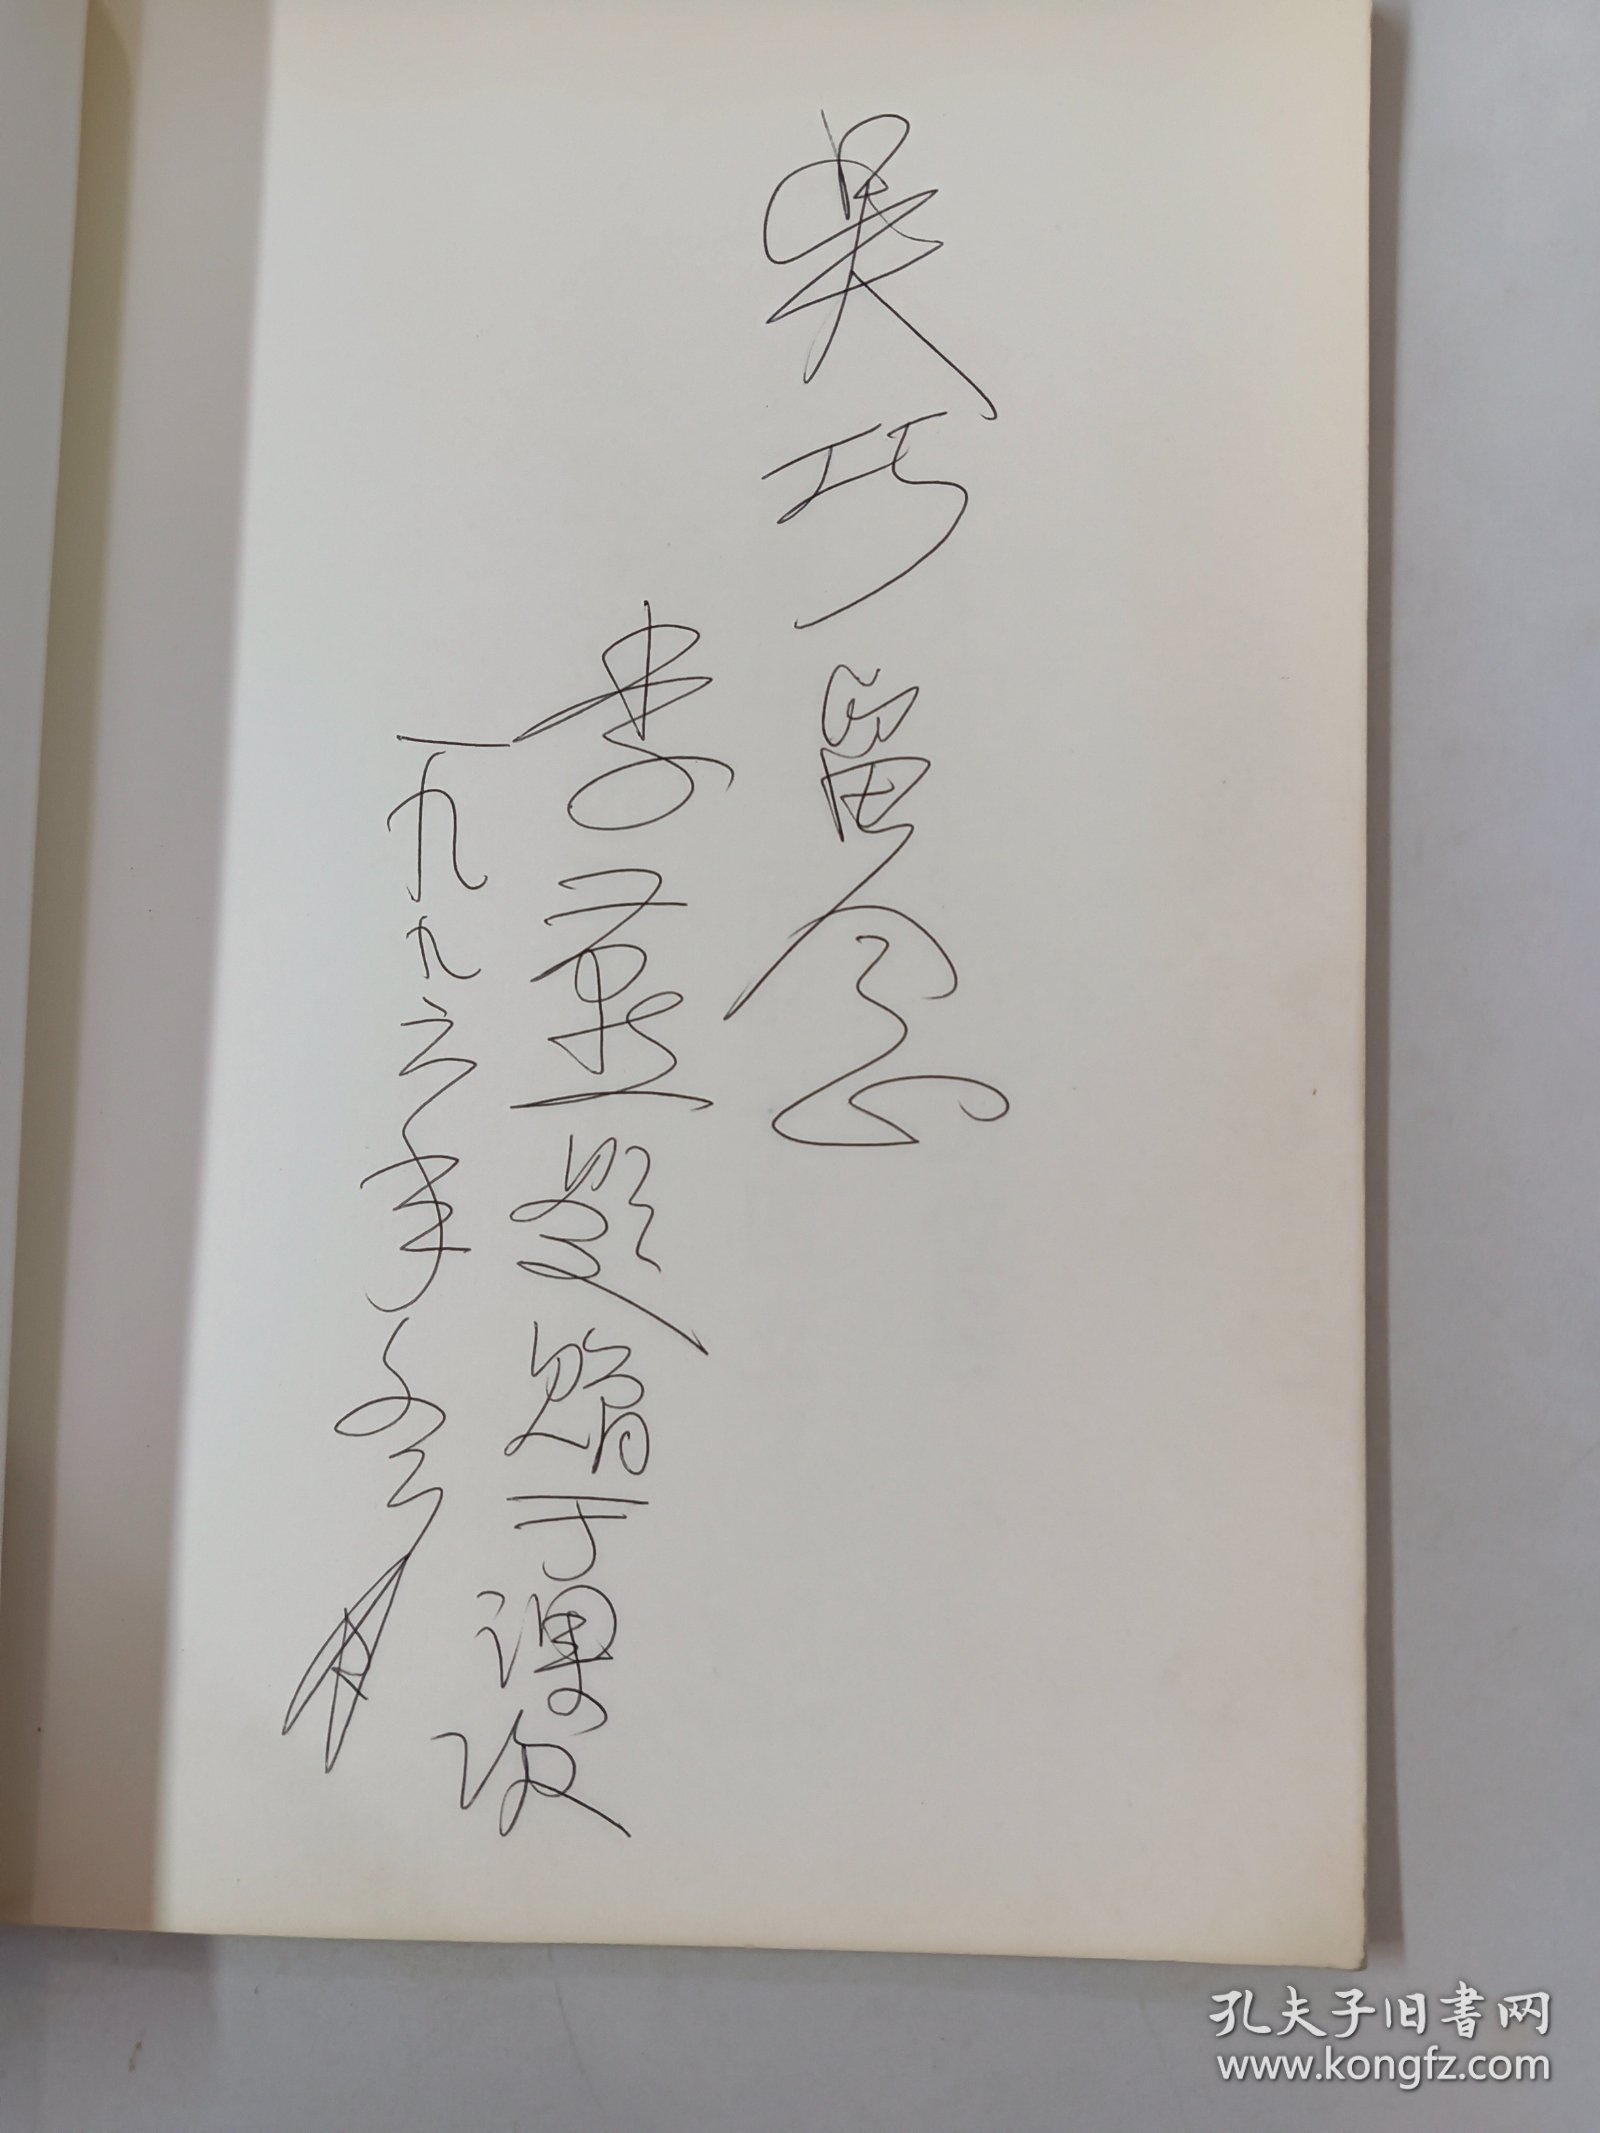 吴巧留念
李燕杰题赠于课次
一九九六年冬月
孔夫子旧书网
www.kongfz.com